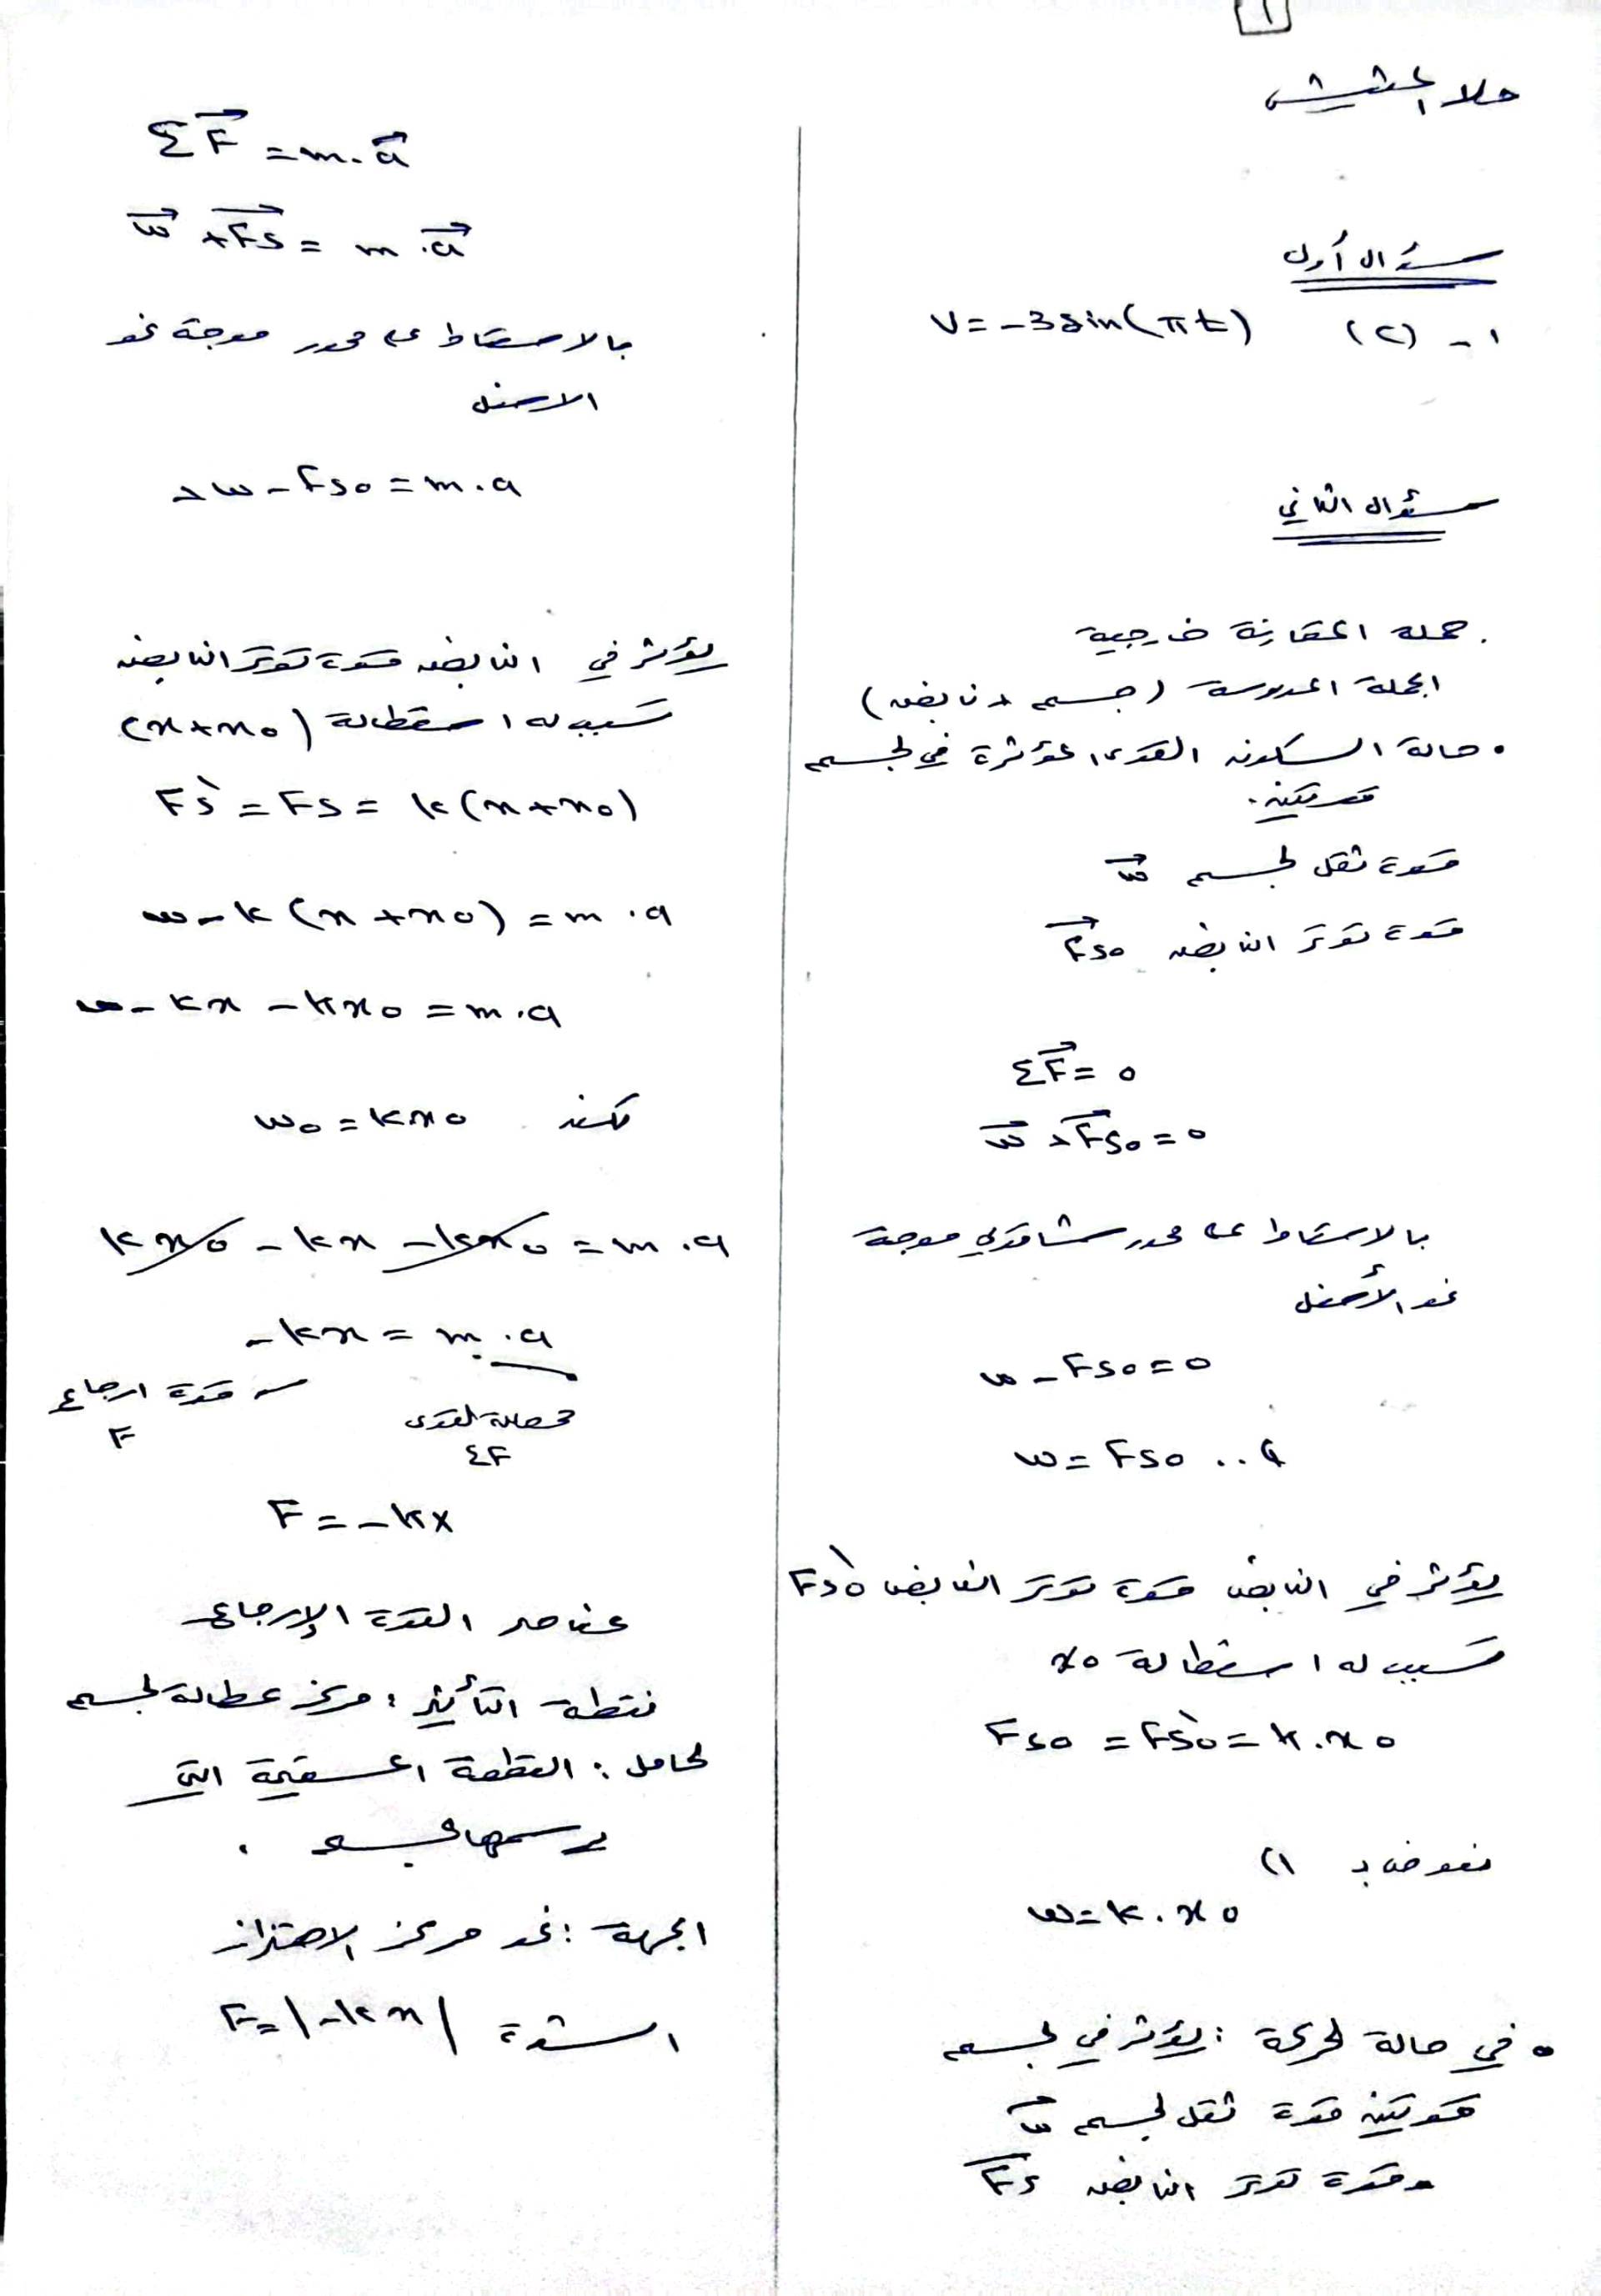 ١
حلا الحشيش
سؤال أول
١ - (c) V = -3 sin(πt)
سؤال الثاني
. جملة المقارنة خارجية
الجملة المدروسة (جسم + نابض)
• حالة السكون القوى المؤثرة في الجسم
قوتين .
قوة ثقل الجسم w⃗
قوة توتر النابض Fs₀⃗
ΣF⃗ = 0
w⃗ + Fs₀⃗ = 0
بالاسقاط على محور شاقولي موجه
نحو الأسفل
w - Fs₀ = 0
w = Fs₀ ..
يؤثر في النابض قوة توتر النابض Fs₀'
تسبب له استطالة x₀
Fs₀ = Fs₀' = k.x₀
نعوض بـ (١
w = k.x₀
• في حالة الحركة : يؤثر في الجسم
قوتين قوة ثقل الجسم w⃗
وقوة توتر النابض Fs⃗
ΣF⃗ = m.a⃗
w⃗ + Fs⃗ = m.a⃗
بالاسقاط على محور موجه نحو
الاسفل
+w - Fs₀ = m.a
يؤثر في النابض قوة توتر النابض
تسبب له استطالة (x+x₀)
Fs' = Fs = k(x+x₀)
w - k(x+x₀) = m.a
w - kx - kx₀ = m.a
لكن w₀ = kx₀
kx₀ - kx - kx₀ = m.a
-kx = m.a
قوة ارجاع
F
محصلة القوى
ΣF
F = -kx
عناصر القوة الإرجاع
نقطة التأثير : مركز عطالة الجسم
الحامل : القطعة المستقيمة التي
يرسمها الجسم .
الجهة : نحو مركز الاهتزاز
الشدة F = |-kx|